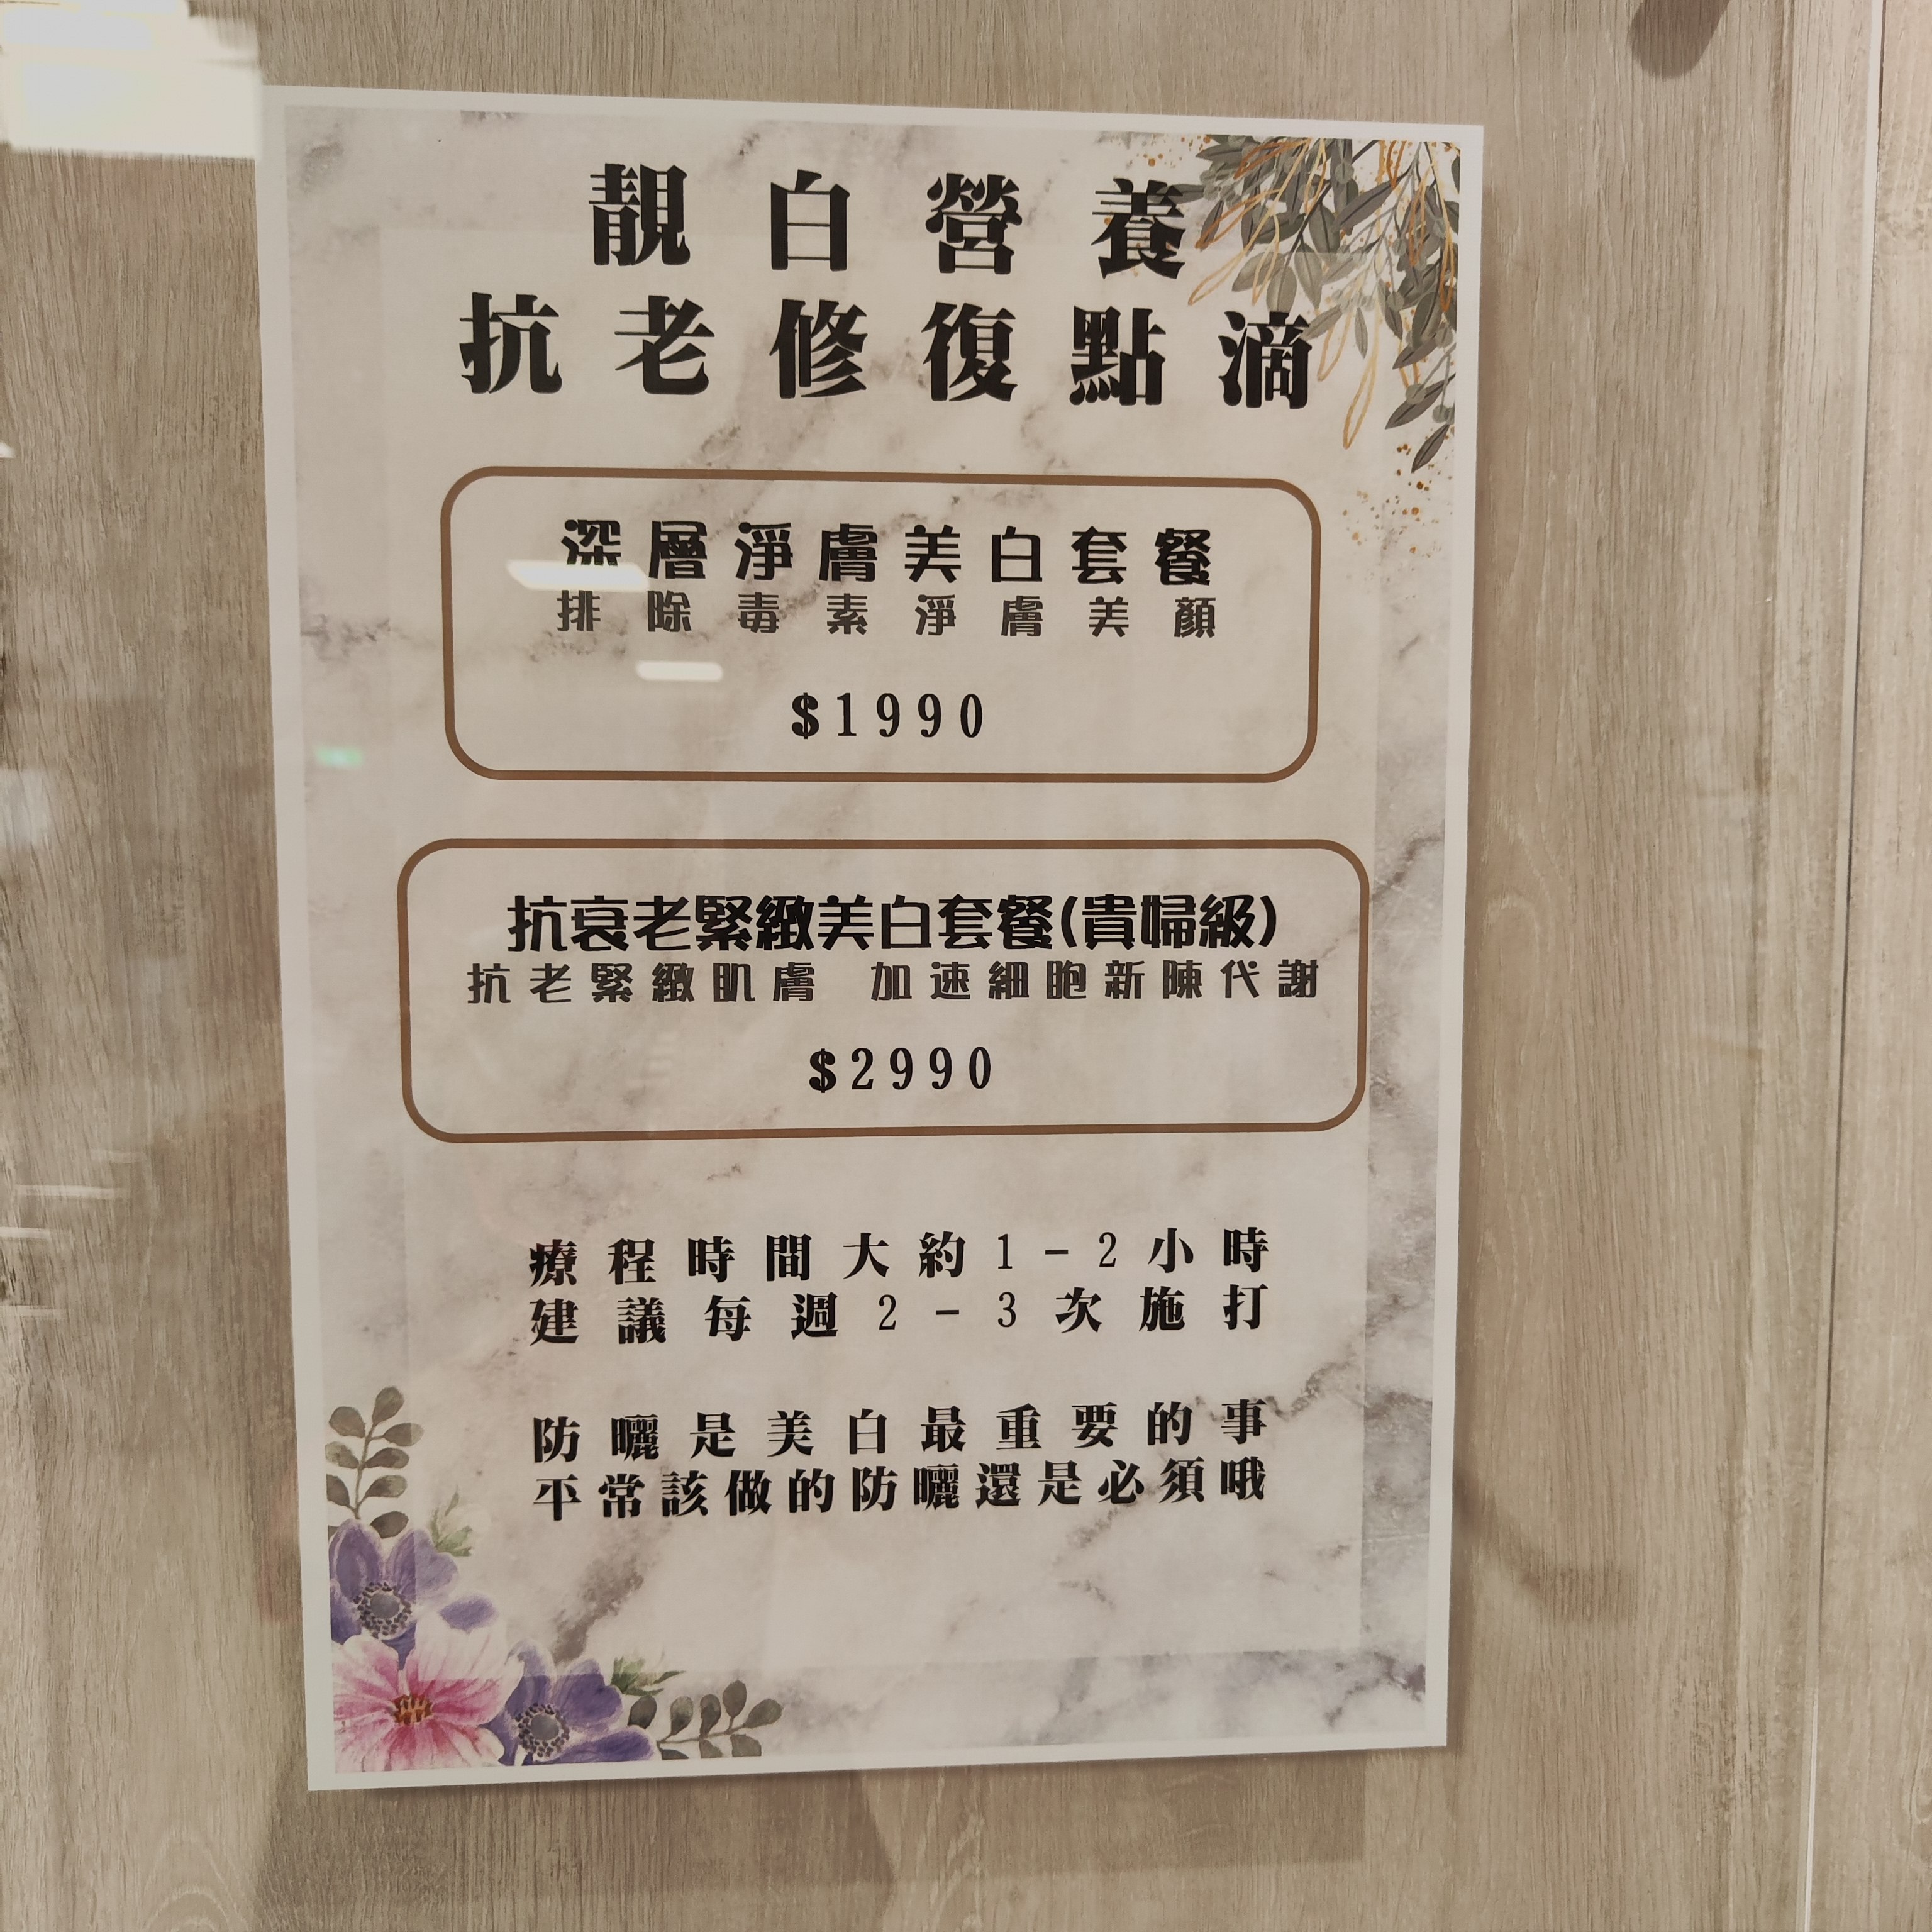 靚白營養
抗老修復點滴
深層淨膚美白套餐
排除毒素淨膚美顏
$1990
抗衰老緊緻美白套餐(貴婦級)
抗老緊緻肌膚 加速細胞新陳代謝
$2990
療程時間大約1-2小時
建議每週2-3次施打
防曬是美白最重要的事
平常該做的防曬還是必須哦